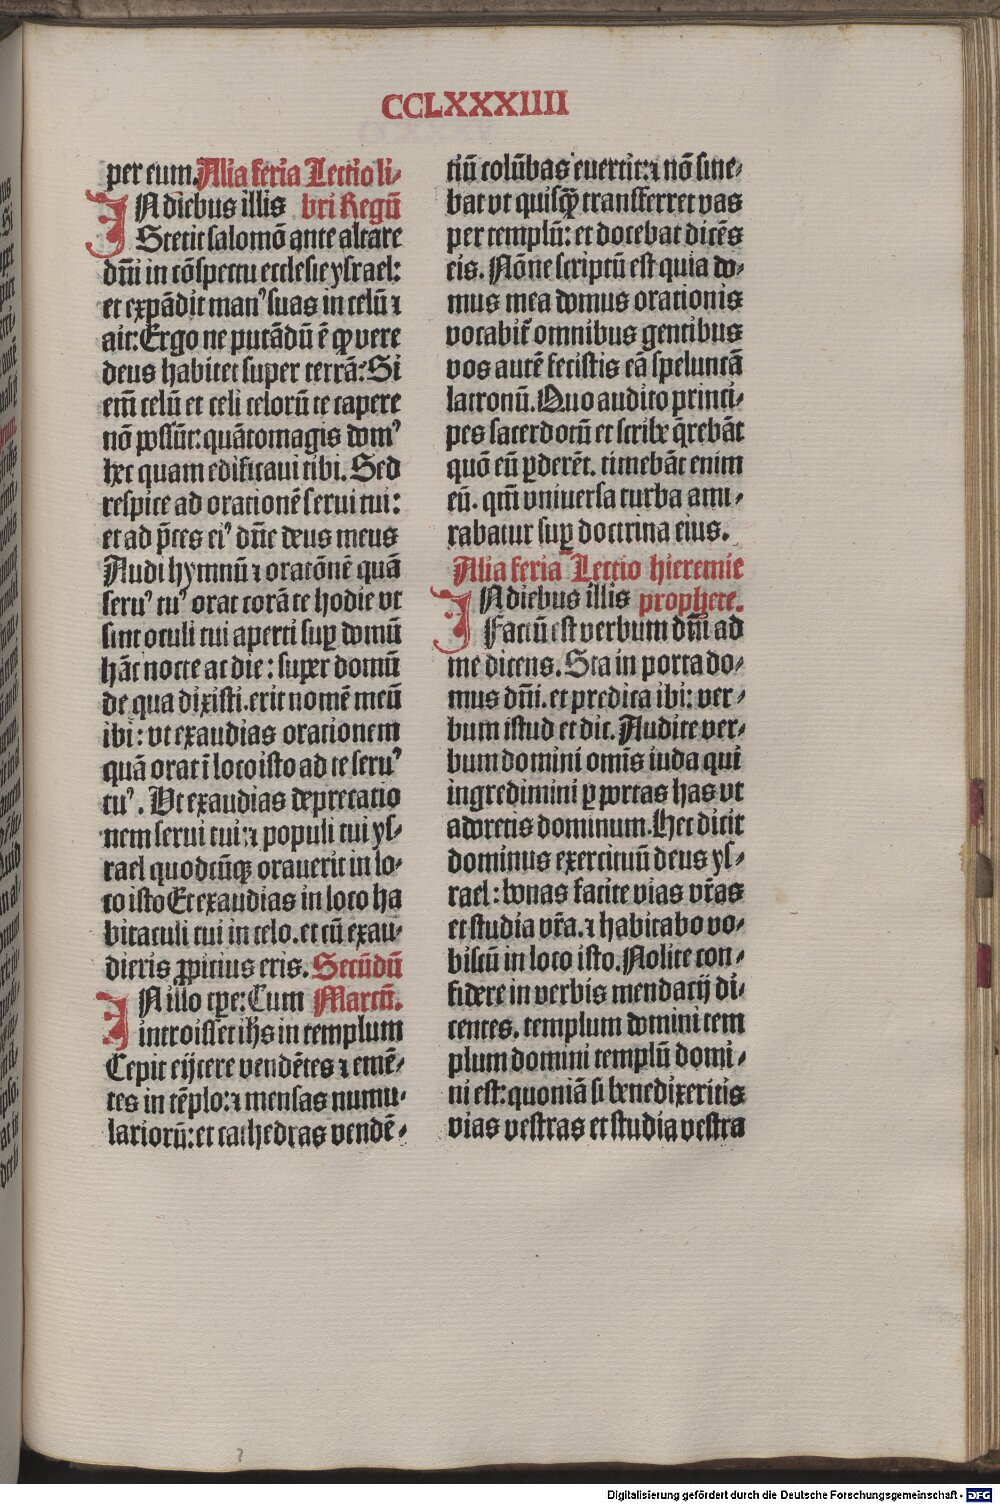 CCLXXXIIII
per eum. Alia feria Lectio li-
IN diebus illis bri Regū
Stetit salomō ante altare
dn̄i in cōspectu ecclesie ysrael:
et expādit manꝰ suas in celū ⁊
ait: Ergo ne putādū ē ꝙ vere
deus habitet super terrā: Si
em̄ celū et celi celorū te capere
nō possūt: quātomagis domꝰ
hec quam edificaui tibi. Sed
respice ad orationē serui tui:
et ad p̄ces eiꝰ dn̄e deus meus
Audi hymnū ⁊ oratōnē quā
seruꝰ tuꝰ orat corā te hodie vt
sint oculi tui aperti suꝑ domū
hāc nocte ac die: super domū
de qua dixisti. erit nomē meū
ibi: vt exaudias orationem
quā orat ī loco isto ad te seruꝰ
tuꝰ. Ut exaudias deprecatio
nem serui tui: ⁊ populi tui ys-
rael quodcūqꝫ orauerit in lo-
co isto Et exaudias in loco ha
bitaculi tui in celo. et cū exau-
dieris ꝓpitius eris. Secūdū
IN illo tꝑe: Cum Marcū.
introisset ihs in templum
Cepit eijcere vendētes ⁊ emē-
tes in tēplo: ⁊ mensas numu-
lariorū: et cathedras vendē-
tiū colūbas euertit: ⁊ nō sine-
bat vt quisꝙ̄ transferret vas
per templū: et docebat dicēs
eis. Nōne scriptū est quia do-
mus mea domus orationis
vocabit̄ omnibus gentibus
vos autē fecistis eā speluncā
latronū. Quo audito princi-
pes sacerdotū et scribe q̄rebāt
quō eū ꝑderēt. timebāt enim
eū. qm̄ vniuersa turba ami-
rabatur suꝑ doctrina eius.
Alia feria Lectio hieremie
IN diebus illis prophete.
Factū est verbum dn̄i ad
me dicens. Sta in porta do-
mus dn̄i. et predica ibi: ver-
bum istud et dic. Audite ver-
bum domini om̄is iuda qui
ingredimini ꝑ portas has vt
adoretis dominum. Hec dicit
dominus exercituū deus ys-
rael: bonas facite vias vr̄as
et studia vr̄a. ⁊ habitabo vo-
biscū in loco isto. Nolite con-
fidere in verbis mendacij di-
centes. templum domini tem
plum domini templū domi-
ni est: quoniā si benedixeritis
vias vestras et studia vestra
Digitalisierung gefördert durch die Deutsche Forschungsgemeinschaft - DFG